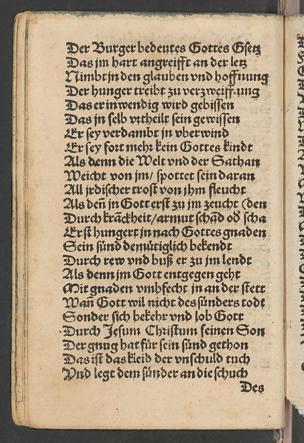 Der Burger bedeutes Gottes Gsetz
Das jm hart angreifft an der letz
Nimbt jn den glauben vnd hoffnung
Der hunger treibt zu verzweiffung
Das er inwendig wird gebissen
Das jn selb vrtheilt sein gewissen
Er sey verdambt jn vberwind
Er sey fort mehr kein Gottes kindt
Als denn die Welt vnd der Sathan
Weicht von jm/ spottet sein daran
All jrdischer trost von jhm fleucht
Als deñ jn Gott erst zu jm zeucht (den
Durch kräckheit/armut schãd oď scha
Erst hungert jn nach Gottes gnaden
Sein sünd demütiglich bekendt
Durch rew vnd buß er zu jm lendt
Als denn jm Gott entgegen geht
Mit gnaden vmbfecht jn an der stett
Wañ Gott wil nicht des sünders todt
Sonder sich bekehr vnd lob Gott
Durch Jesum Christum seinen Son
Der gnug hat für sein sünd gethon
Das ist das kleid der vnschuld tuch
Vnd legt dem sünder an die schuch
Des